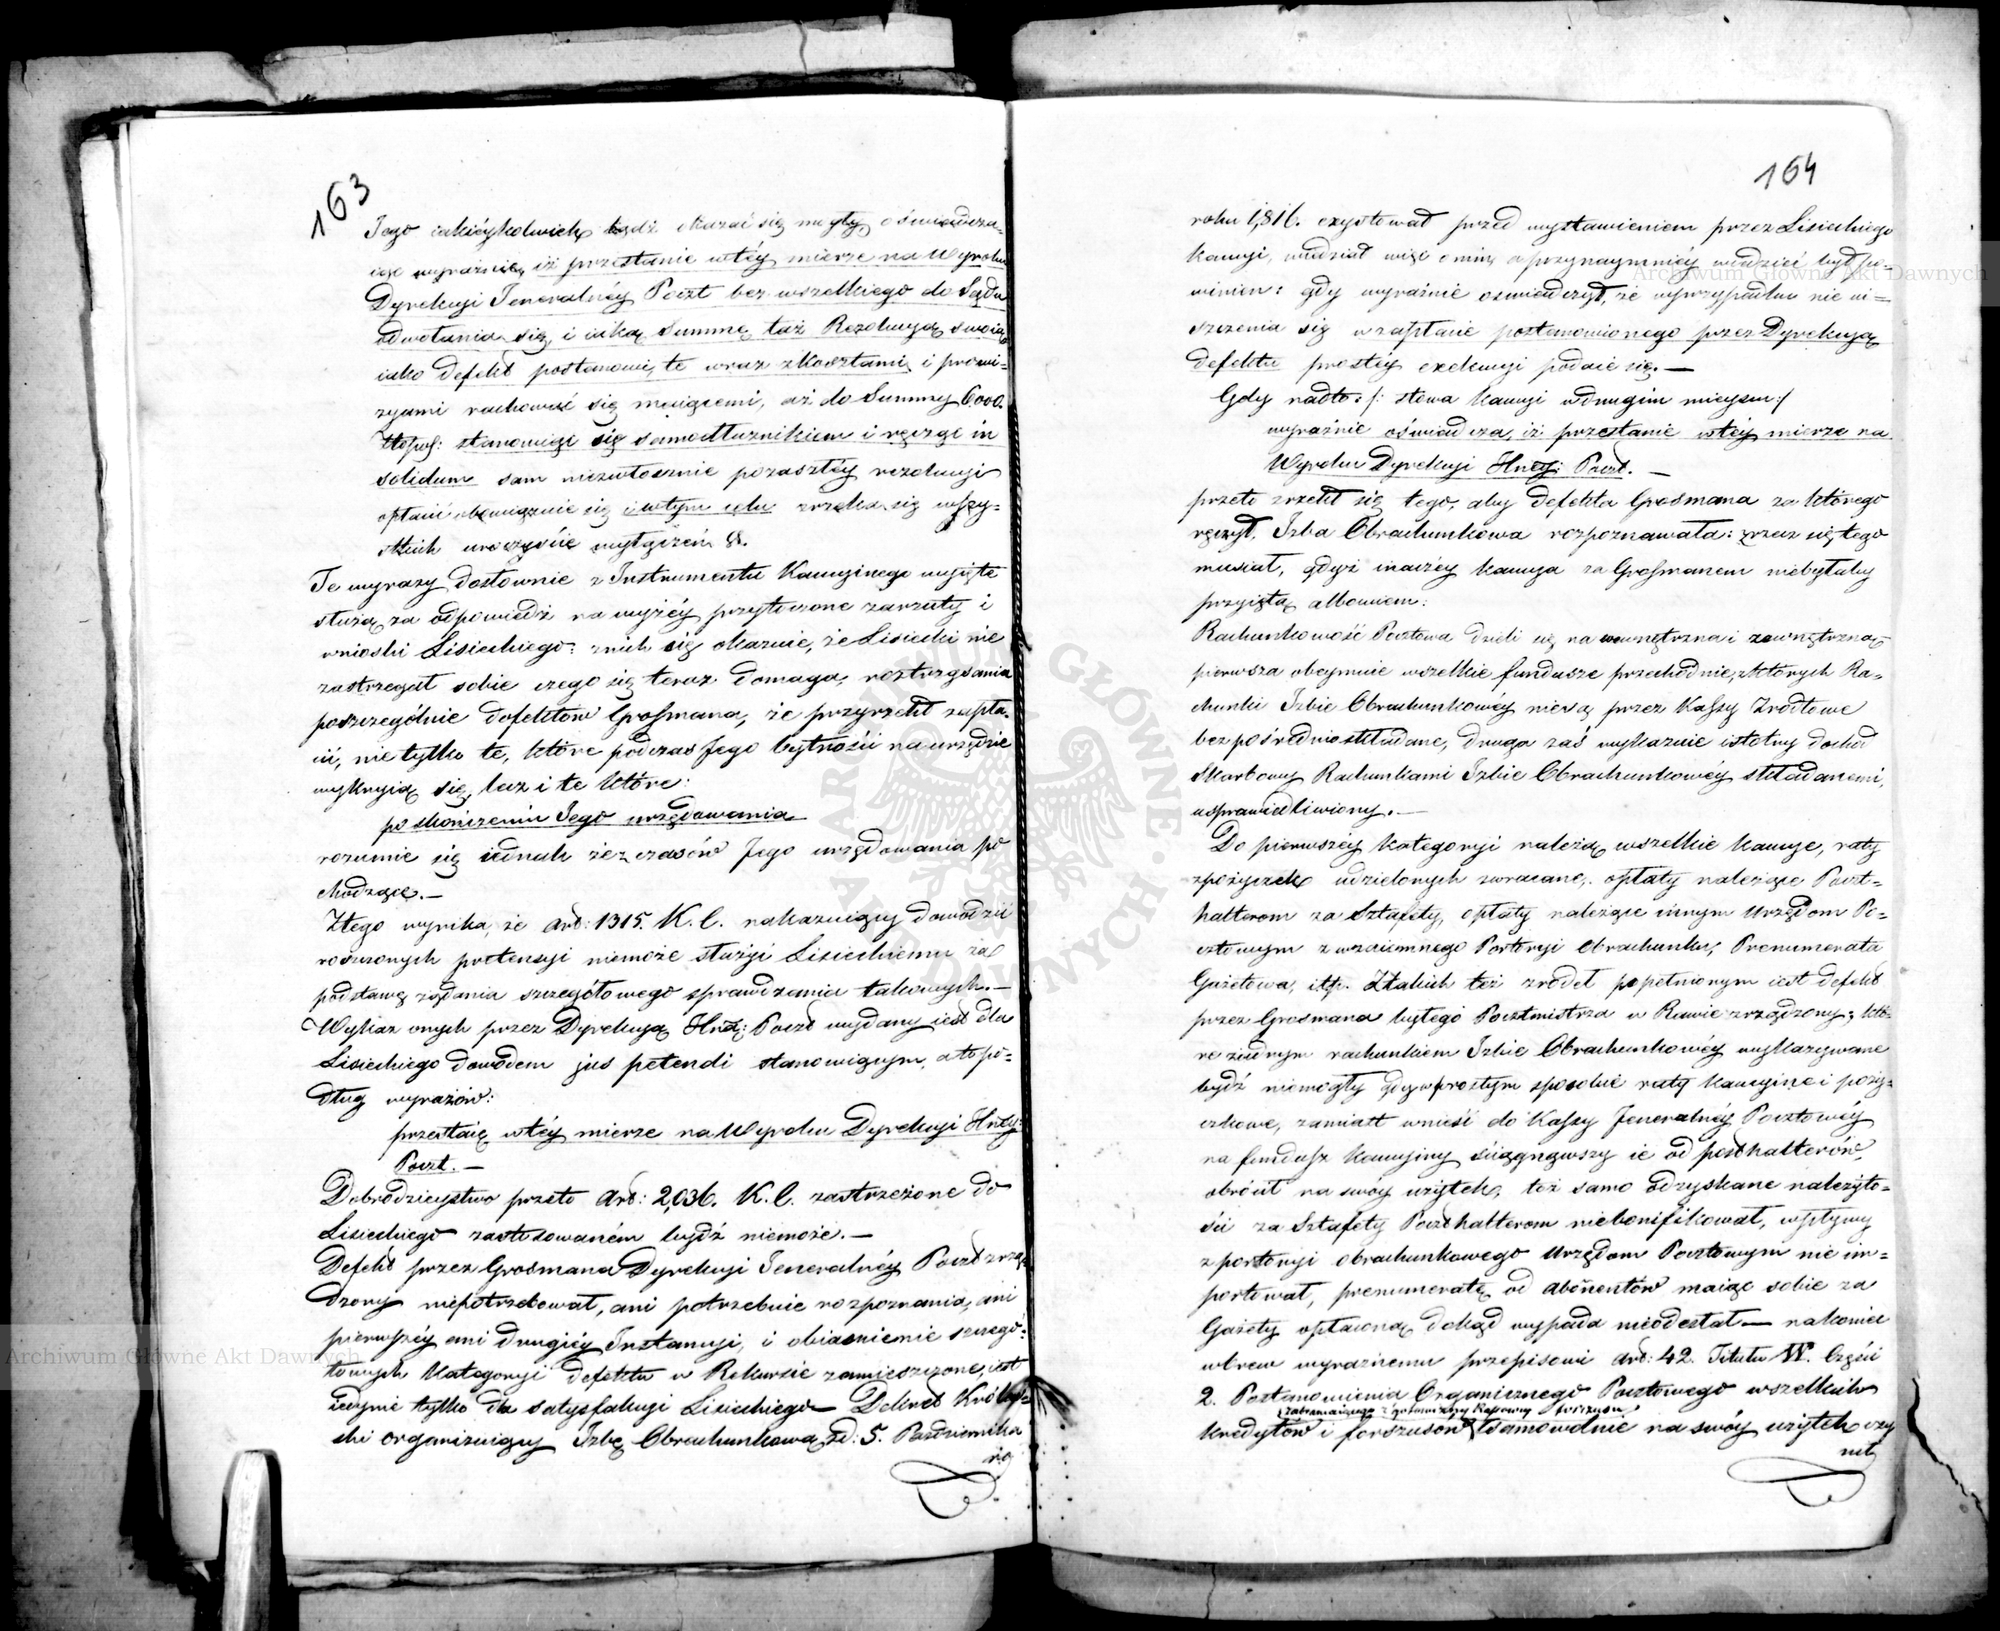 163
Jego iakieykolwiek bądź okazać się mogły, oświadcza-
iąc wyraźnie, iż przestanie w téy mierze na Wyroku
Dyrekcyi Jeneralnéy Poczt bez wszelkiego do Sądu
odwołania się, i iaką Summę taż Rezolucyą swoią
iako Defekt postanowi, te wraz z kosztami i prowi-
zyami rachować się maiącemi, aż do Summy 6000.
stanowiąc się samodłużnikiem i ręcząc in
solidum sam niezwłocznie po zaszłéy rezolucyi
opłacić obowiązuie się i w tym celu zrzeka się wszy-
stkich uroczyście wyłączeń &.
Te wyrazy dosłownie z Instrumentu Kaucyinego wyięte
służą za odpowiedź na wyżéy przytoczone zarzuty i
wnioski Lisieckiego: z nich się okazuie, że Lisiecki nie
zastrzegał sobie czego się teraz domaga, roztrząsania
poszczególnie defektów Grosmana, że przyrzekł zapła-
cić, nie tylko te, które podczas Jego bytności na urzędzie
wykryią się, lecz i te które:
po skończeniu Jego urzędowania
rozumie się iednak że z czasów Jego urzędowania po
chodzące. —
Z tego wynika, że art: 1315. K. C. nakazuiący dowodzić
roszczonych pretensyi niemoże służyć Lisieckiemu za
podstawę żądania szczegółowego sprawdzenia takowych. —
Wykaz onych przez Dyrekcyą Jlną: Poczt wydany iest dla
Lisieckiego dowodem jus petendi stanowiącym, a to po-
dług wyrazów:
przestaię w téy mierze na Wyroku Dyrekcyi Jlnéy:
Poczt. —
Dobrodzieystwo przeto art: 2,036. K. C. zastrzeżone do
Lisieckiego zastosowaném bydź niemoże. —
Defekt przez Grosmana Dyrekcyi Jeneralnéy Poczt zrzą-
dzony niepotrzebował, ani potrzebuie rozpoznania, ani
pierwszéy ani drugiéy Instancyi, i obiaśnienie szczegó-
łowych Kategoryi defektu w Rekursie zamieszczone, iest
iedynie tylko dla satysfakcyi Lisieckiego — Dekret Królew-
ski organizuiący Izbę Obrachunkową z d: 5. Października
r:o
164
roku 1,816. exystował przed wystawieniem przez Lisieckiego
kaucyi, wiedział więc o nim, a przynaymniéy wiedzieć był po-
winien: gdy wyraźnie oświadczył, że w przypadku nie ui-
szczenia się w zapłacie postanowionego przez Dyrekcyą
defektu prostéy exekucyi poddaie się. —
Gdy nadto: /: słowa kaucyi w drugim mieyscu :/
wyraźnie oświadcza, iż przestanie w téy mierze na
Wyroku Dyrekcyi Jlnéy: Poczt. —
przeto zrzekł się tego, aby defekta Grosmana za którego
ręczył, Izba Obrachunkowa rozpoznawała: zrzec się tego
musiał, gdyż inaczéy kaucya za Grosmanem niebyłaby
przyiętą albowiem:
Rachunkowość Pocztowa dzieli się na wewnętrzna i zewnętrzną
pierwsza obeymuie wszelkie fundusze przechodnie, z których Ra-
chunki Izbie Obrachunkowéy nie są przez Kassy Zrodłowe
bezpośrednio składane, druga zaś wykazuie istotny dochód
Skarbowy Rachunkami Izbie Obrachunkowéy składanemi,
usprawiedliwiony. —
Do pierwszéy kategoryi należą wszelkie kaucye, raty
z pożyczek udzielonych zwracane, opłaty należące Poczt-
halterom za Sztafety, opłaty należące innym Urzędom Po-
cztowym z wzaiemnego Portoryi Obrachunku, Prenumerata
Gazetowa, itp. Z takich też zrodeł popełnionym iest defekt
przez Grosmana byłego Pocztmistrza w Rawie zrządzony; któ-
re żadnym rachunkiem Izbie Obrachunkowéy wykazywane
bydź niemogły gdy w prostym sposobie raty kaucyine i poży-
czkowe, zamiast wnieść do Kassy Jeneralnéy Pocztowéy
na fundusz kaucyiny ściągnąwszy ie od poczthalterów,
obrócił na swóy użytek, też samo odzyskane należyto-
ści za Sztafety Poczthalterom niebonifikował, wpływy
z portoryi obrachunkowego Urzędom Pocztowym nie im-
portował, prenumeratę od abonentów maiąc sobie za
Gazety opłaconą dokąd wypada nieodesłał — nakoniec
wbrew wyraźnemu przepisowi art: 42. Tytułu VI. Części
2. Postanowienia Organicznego Pocztowego wszelkich
kredytów i forszusów samowolnie na swóy użytek uży
wał